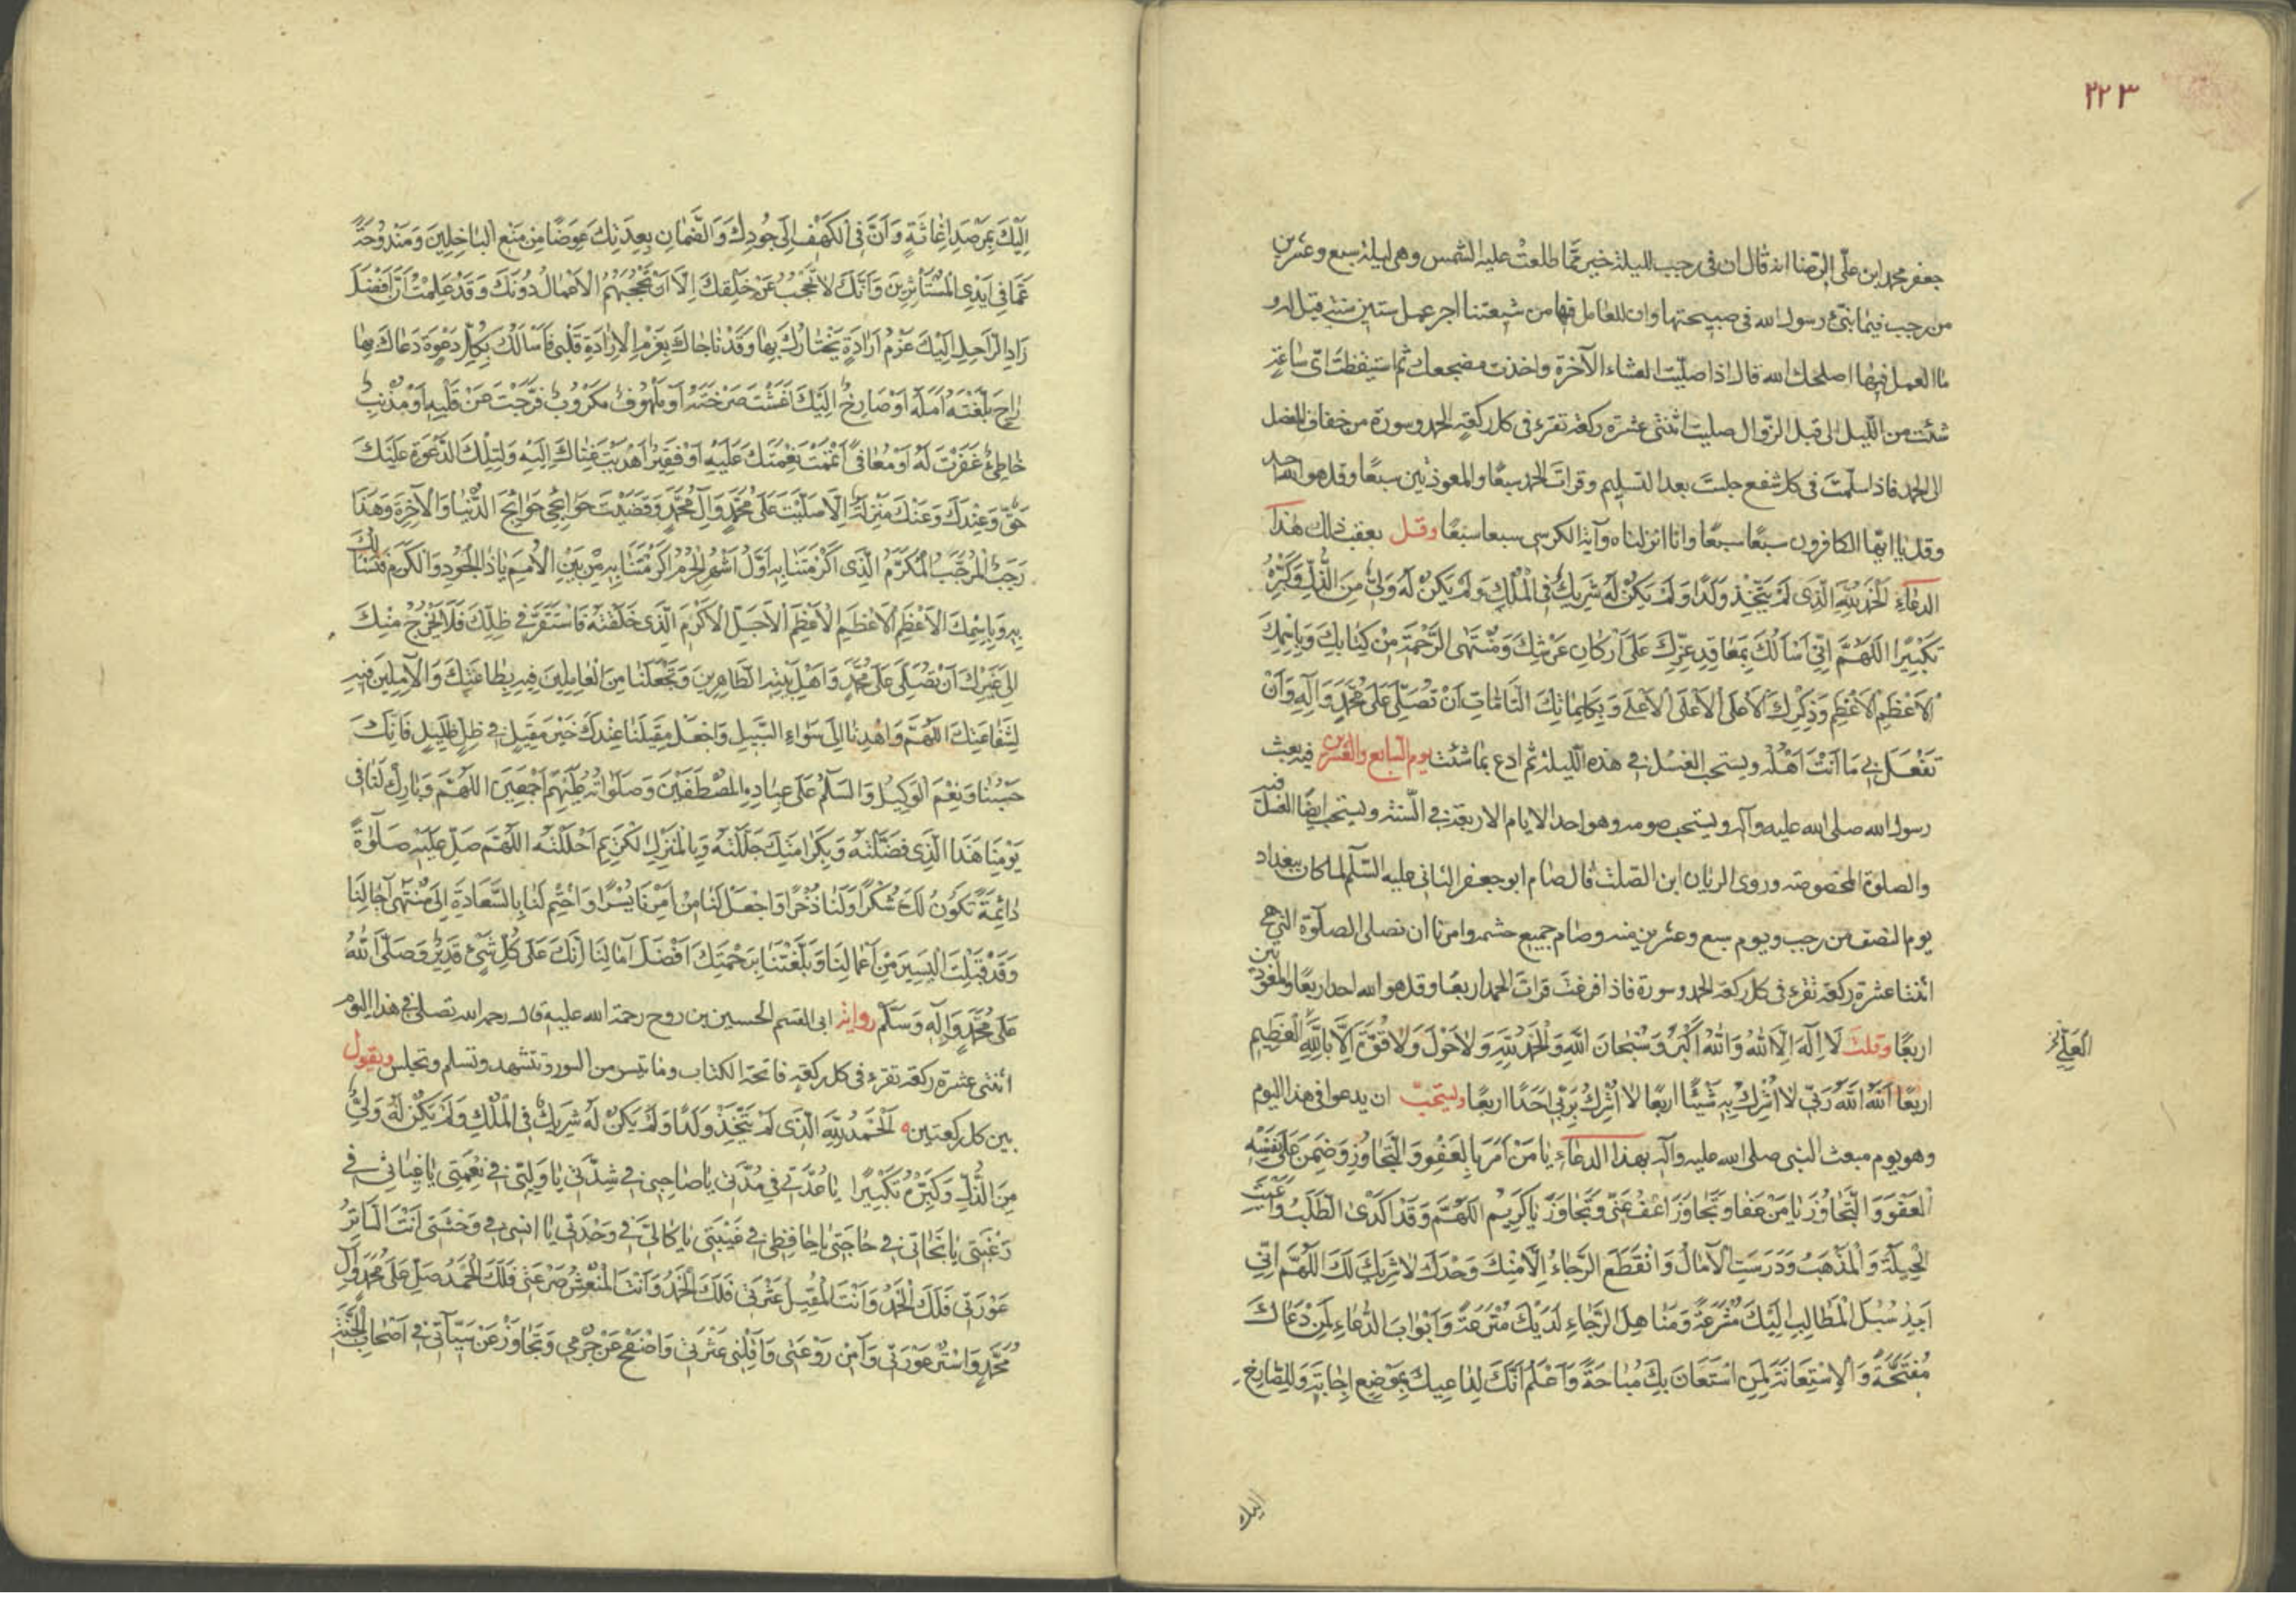 ٢٢٣
جعفر محمد ابن علي الرضا انه قال ان في رجب لليلة خير مما طلعت عليه الشمس وهي ليلة سبع وعشرين
من رجب فيما نبئ رسول الله في صبيحتها وان للعامل فيها من شيعتنا اجر عمل ستين سنة قيل له و
ما العمل فيها اصلحك الله قال اذا صليت العشاء الآخرة واخذت مضجعك ثم استيقظت اي ساعة
شئت من الليل الى قبل الزوال صليت اثنتى عشرة ركعة تقرء في كل ركعة الحمد وسورة من خفاف المفصل
الى الحمد فاذا سلمت في كل شفع جلست بعد التسليم وقرات الحمد سبعًا والمعوذتين سبعًا وقل هو الله احد
وقل يا ايها الكافرون سبعًا سبعًا وانا انزلناه وآية الكرسي سبعا سبعًا وقل بعقب ذلك هذا
الدعاء اَلْحَمْدُ لِلّٰهِ الَّذِى لَمْ يَتَّخِذْ وَلَدًا وَلَمْ يَكُنْ لَهُ شَرِيكٌ فِى الْمُلْكِ وَلَمْ يَكُنْ لَهُ وَلِىٌّ مِنَ الذُّلِّ وَكَبِّرْهُ
تَكْبِيرًا اَللّٰهُمَّ اِنِّى اَسْاَلُكَ بِمَعَاقِدِ عِزِّكَ عَلٰى اَرْكَانِ عَرْشِكَ وَمُنْتَهَى الرَّحْمَةِ مِنْ كِتَابِكَ وَبِاسْمِكَ
الْاَعْظَمِ الْاَعْظَمِ وَذِكْرِكَ الْاَعْلَى الْاَعْلَى الْاَعْلَى وَبِكَلِمَاتِكَ التَّامَّاتِ اَنْ تُصَلِّىَ عَلٰى مُحَمَّدٍ وَآلِهِ وَاَنْ
تَفْعَلَ بِى مَا اَنْتَ اَهْلُهُ ويستحب الغسل في هذه الليلة ثم ادع بما شئت يوم السابع والعشرين فيه بعث
رسول الله صلى الله عليه وآله ويستحب صومه وهو احد الايام الاربعة في السنة ويستحب ايضًا الغسل فيه
والصلوة المخصوصة وروى الريان ابن الصلت قال صام ابو جعفر الثاني عليه السلم لما كان ببغداد
يوم النصف من رجب ويوم سبع وعشرين منه وصام جميع حشمه وامرنا ان نصلى الصلوة التي هي
اثنتا عشرة ركعة تقرء في كل ركعة الحمد وسورة فاذا فرغت قرات الحمد اربعًا وقل هو الله احد اربعًا والمعوذتين
اربعًا وقلت لَا اِلٰهَ اِلَّا اللّٰهُ وَاللّٰهُ اَكْبَرُ وَسُبْحَانَ اللّٰهِ وَالْحَمْدُ لِلّٰهِ وَلَا حَوْلَ وَلَا قُوَّةَ اِلَّا بِاللّٰهِ الْعَظِيمِ
اربعًا اَللّٰهُ اَللّٰهُ رَبِّى لَا اُشْرِكُ بِهِ شَيْئًا اربعًا لَا اُشْرِكُ بِرَبِّى اَحَدًا اربعًا ويستحب ان يدعو في هذا اليوم
وهو يوم مبعث النبي صلى الله عليه وآله بهذا الدعاء يَا مَنْ اَمَرَ بِالْعَفْوِ وَالتَّجَاوُزِ وَضَمِنَ عَلٰى نَفْسِهِ
الْعَفْوَ وَالتَّجَاوُزَ يَا مَنْ عَفَا وَتَجَاوَزَ اعْفُ عَنِّى وَتَجَاوَزْ يَا كَرِيمُ اَللّٰهُمَّ وَقَدْ اَكْدَى الطَّلَبُ وَاَعْيَتِ
الْحِيلَةُ وَالْمَذْهَبُ وَدَرَسَتِ الْآمَالُ وَانْقَطَعَ الرَّجَاءُ اِلَّا مِنْكَ وَحْدَكَ لَا شَرِيكَ لَكَ اَللّٰهُمَّ اِنِّى
اَجِدُ سُبُلَ الْمَطَالِبِ اِلَيْكَ مُشْرَعَةً وَمَنَاهِلَ الرَّجَاءِ لَدَيْكَ مُتْرَعَةً وَاَبْوَابَ الدُّعَاءِ لِمَنْ دَعَاكَ
مُفَتَّحَةً وَالْاِسْتِعَانَةَ لِمَنِ اسْتَعَانَ بِكَ مُبَاحَةً وَاَعْلَمُ اَنَّكَ لِدَاعِيكَ بِمَوْضِعِ اِجَابَةٍ وَلِلصَّارِخِ
اليك
اِلَيْكَ بِمَرْصَدِ اِغَاثَةٍ وَاَنَّ فِى الْكَهْفِ اِلٰى جُودِكَ وَالضَّمَانِ بِعِدَتِكَ عِوَضًا مِنْ مَنْعِ الْبَاخِلِينَ وَمَنْدُوحَةً
عَمَّا فِى اَيْدِى الْمُسْتَأْثِرِينَ وَاَنَّكَ لَا تُحْجَبُ عَنْ خَلْقِكَ اِلَّا اَنْ تَحْجُبَهُمُ الْاَعْمَالُ دُونَكَ وَقَدْ عَلِمْتُ اَنَّ اَفْضَلَ
زَادِ الرَّاحِلِ اِلَيْكَ عَزْمُ اِرَادَةٍ يَخْتَارُكَ بِهَا وَقَدْ نَاجَاكَ بِعَزْمِ الْاِرَادَةِ قَلْبِى فَاَسْاَلُكَ بِكُلِّ دَعْوَةٍ دَعَاكَ بِهَا
رَاجٍ بَلَّغْتَهُ اَمَلَهُ اَوْ صَارِخٌ اِلَيْكَ اَغَثْتَ صَرْخَتَهُ اَوْ مَلْهُوفٌ مَكْرُوبٌ فَرَّجْتَ عَنْ قَلْبِهِ اَوْ مُذْنِبٌ
خَاطِئٌ غَفَرْتَ لَهُ اَوْ مُعَافًى اَتْمَمْتَ نِعْمَتَكَ عَلَيْهِ اَوْ فَقِيرٌ اَهْدَيْتَ غِنَاكَ اِلَيْهِ وَلِتِلْكَ الدَّعْوَةِ عَلَيْكَ
حَقٌّ وَعِنْدَكَ مَنْزِلَةٌ اِلَّا صَلَّيْتَ عَلٰى مُحَمَّدٍ وَآلِ مُحَمَّدٍ وَقَضَيْتَ حَوَائِجِى حَوَائِجَ الدُّنْيَا وَالْآخِرَةِ وَهٰذَا
رَجَبٌ الْمُرَجَّبُ الْمُكَرَّمُ الَّذِى اَكْرَمْتَنَا بِهِ اَوَّلُ اَشْهُرِ الْحُرُمِ اَكْرَمْتَنَا بِهِ مِنْ بَيْنِ الْاُمَمِ يَا ذَا الْجُودِ وَالْكَرَمِ فَنَسْاَلُكَ
بِهِ وَبِاسْمِكَ الْاَعْظَمِ الْاَعْظَمِ الْاَعْظَمِ الْاَجَلِّ الْاَكْرَمِ الَّذِى خَلَقْتَهُ فَاسْتَقَرَّ فِى ظِلِّكَ فَلَا يَخْرُجُ مِنْكَ
اِلٰى غَيْرِكَ اَنْ تُصَلِّىَ عَلٰى مُحَمَّدٍ وَاَهْلِ بَيْتِهِ الطَّاهِرِينَ وَتَجْعَلَنَا مِنَ الْعَامِلِينَ فِيهِ بِطَاعَتِكَ وَالْآمِلِينَ فِيهِ
لِشَفَاعَتِكَ اَللّٰهُمَّ وَاهْدِنَا اِلٰى سَوَاءِ السَّبِيلِ وَاجْعَلْ مَقِيلَنَا عِنْدَكَ خَيْرَ مَقِيلٍ فِى ظِلٍّ ظَلِيلٍ فَاِنَّكَ
حَسْبُنَا وَنِعْمَ الْوَكِيلُ وَالسَّلٰمُ عَلٰى عِبَادِهِ الْمُصْطَفَيْنَ وَصَلَوَاتُهُ عَلَيْهِمْ اَجْمَعِينَ اَللّٰهُمَّ وَبَارِكْ لَنَا فِى
يَوْمِنَا هٰذَا الَّذِى فَضَّلْتَهُ وَبِكَرَامَتِكَ جَلَّلْتَهُ وَبِالْمَنْزِلِ الْكَرِيمِ اَحْلَلْتَهُ اَللّٰهُمَّ صَلِّ عَلَيْهِ صَلٰوةً
دَائِمَةً تَكُونُ لَكَ شُكْرًا وَلَنَا ذُخْرًا وَاجْعَلْ لَنَا مِنْ اَمْرِنَا يُسْرًا وَاخْتِمْ لَنَا بِالسَّعَادَةِ اِلٰى مُنْتَهٰى آجَالِنَا
وَقَدْ قَبِلْتَ الْيَسِيرَ مِنْ اَعْمَالِنَا وَبَلَّغْتَنَا بِرَحْمَتِكَ اَفْضَلَ آمَالِنَا اِنَّكَ عَلٰى كُلِّ شَىْءٍ قَدِيرٌ وَصَلَّى اللّٰهُ
عَلٰى مُحَمَّدٍ وَآلِهِ وَسَلَّمَ رواية ابى القسم الحسين بن روح رحمة الله عليه قال رحمه الله تصلى في هذا اليوم
اثنتى عشرة ركعة تقرء في كل ركعة فاتحة الكتاب وما تيسر من السور وتتشهد وتسلم وتجلس ويقول
بين كل ركعتين اَلْحَمْدُ لِلّٰهِ الَّذِى لَمْ يَتَّخِذْ وَلَدًا وَلَمْ يَكُنْ لَهُ شَرِيكٌ فِى الْمُلْكِ وَلَمْ يَكُنْ لَهُ وَلِىٌّ
مِنَ الذُّلِّ وَكَبِّرْهُ تَكْبِيرًا يَا عُدَّتِى فِى مُدَّتِى يَا صَاحِبِى فِى شِدَّتِى يَا وَلِيِّى فِى نِعْمَتِى يَا غِيَاثِى فِى
رَغْبَتِى يَا نَجَاتِى فِى حَاجَتِى يَا حَافِظِى فِى غَيْبَتِى يَا كَالِئِى فِى وَحْدَتِى يَا اُنْسِى فِى وَحْشَتِى اَنْتَ السَّاتِرُ
عَوْرَتِى فَلَكَ الْحَمْدُ وَاَنْتَ الْمُقِيلُ عَثْرَتِى فَلَكَ الْحَمْدُ وَاَنْتَ الْمُنْعِشُ صَرْعَتِى فَلَكَ الْحَمْدُ صَلِّ عَلٰى مُحَمَّدٍ وَآلِ
مُحَمَّدٍ وَاسْتُرْ عَوْرَتِى وَآمِنْ رَوْعَتِى وَاَقِلْنِى عَثْرَتِى وَاصْفَحْ عَنْ جُرْمِى وَتَجَاوَزْ عَنْ سَيِّئَاتِى فِى اَصْحَابِ الْجَنَّةِ